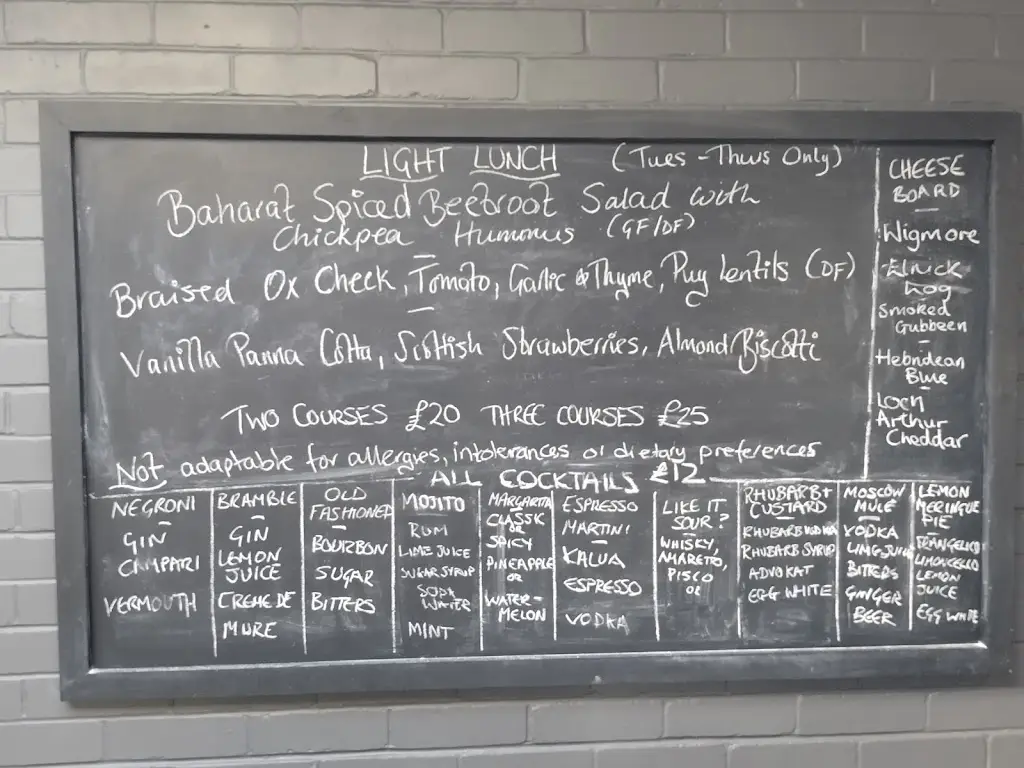 LIGHT LUNCH (Tues - Thurs Only)
Baharat Spiced Beetroot Salad with
Chickpea Hummus (GF/DF)
Braised Ox Cheek, Tomato, Garlic & Thyme, Puy Lentils (DF)
Vanilla Panna Cotta, Scottish Strawberries, Almond Biscotti
TWO COURSES £20 THREE COURSES £25
Not adaptable for allergies, intolerances or dietary preferences
CHEESE
BOARD
Wigmore
Elrick
Log
Smoked
Gubbeen
Hebridean
Blue
Loch
Arthur
Cheddar
ALL COCKTAILS £12
NEGRONI
GIN
CAMPARI
VERMOUTH
BRAMBLE
GIN
LEMON
JUICE
CREME DE
MURE
OLD
FASHIONED
BOURBON
SUGAR
BITTERS
MOJITO
RUM
LIME JUICE
SUGAR SYRUP
SODA
WATER
MINT
MARGARITA
CLASSIC
OR
SPICY
PINEAPPLE
OR
WATER-
MELON
ESPRESSO
MARTINI
KALUA
ESPRESSO
VODKA
LIKE IT
SOUR?
WHISKY,
AMARETTO,
PISCO
OR
RHUBARB +
CUSTARD
RHUBARB VODKA
RHUBARB SYRUP
ADVOKAT
EGG WHITE
MOSCOW
MULE
VODKA
LIME JUICE
BITTERS
GINGER
BEER
LEMON
MERINGUE
PIE
FRANGELICO
LIMONCELLO
LEMON
JUICE
EGG WHITE